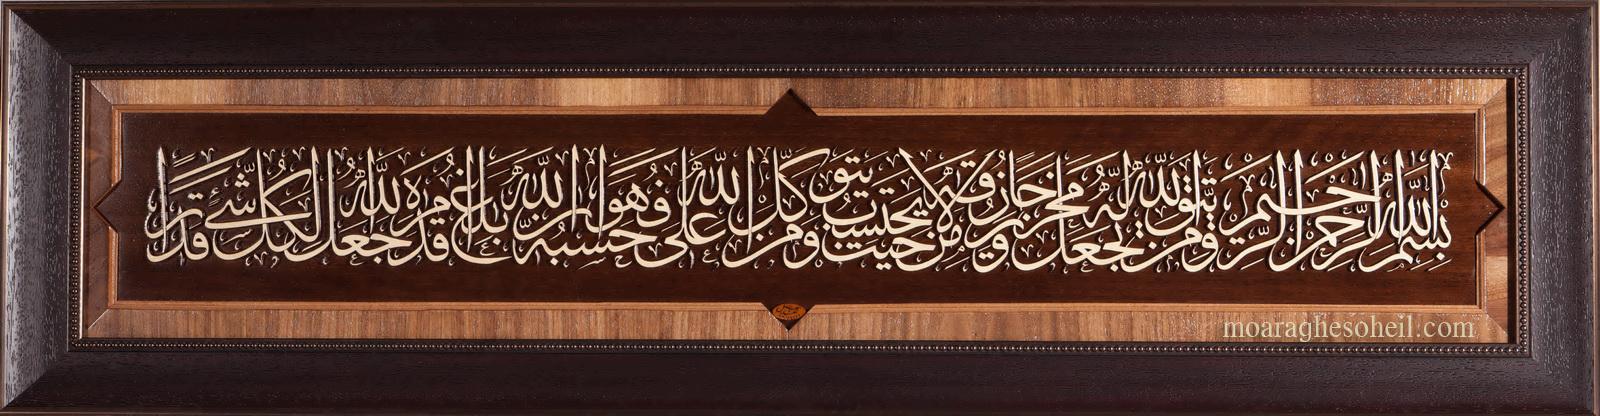 بسم الله الرحمن الرحیم ومن یتق الله یجعل له مخرجا ویرزقه من حیث لا یحتسب ومن یتوکل علی الله فهو حسبه ان الله بالغ امره قد جعل الله لکل شیء قدرا
moaraghesoheil.com